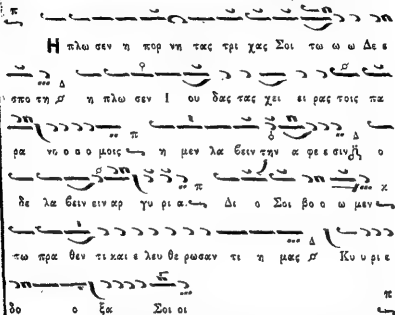 Η πλω σεν η πορ νη τας τρι χας Σοι τω ω ω Δε ε
σπο τη η πλω σεν Ι ου δας τας χει ει ρας τοις πα
ρα νο ο ο μοις η μεν λα βειν την α φε ε σιν ο
δε λα βειν ειν αρ γυ ρι α. Δι ο Σοι βο ο ω μεν
τω πρα θεν τι και ε λευ θε ρω σαν τι η μας Κυ υ ρι ε
δο ο ξα Σοι οι